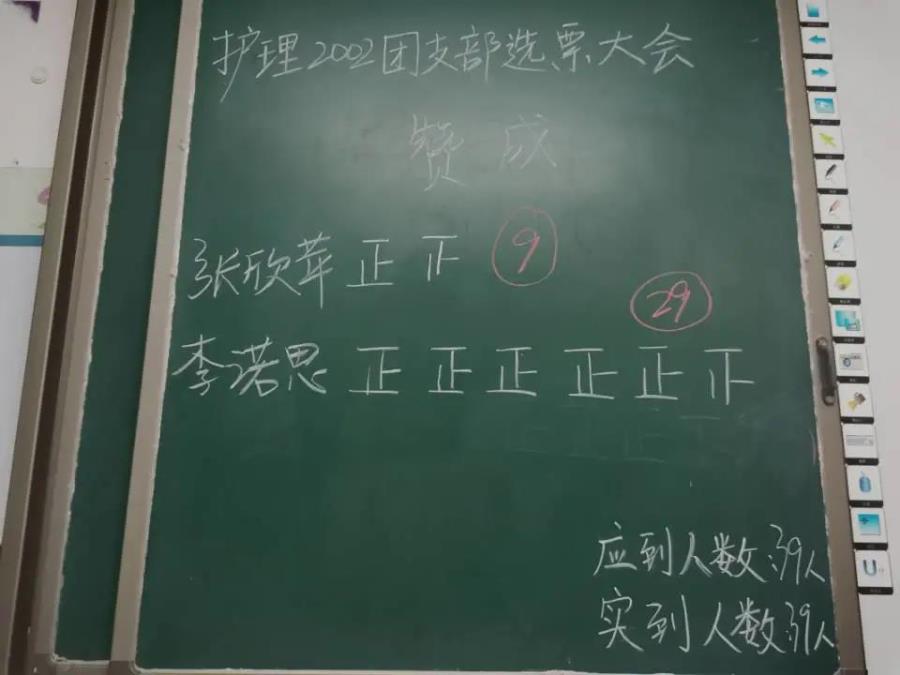 护理2002团支部选票大会
赞成
张欣苹 正 𣥂 9
29
李诺思 正 正 正 正 正 𣥂
应到人数:39人
实到人数39人